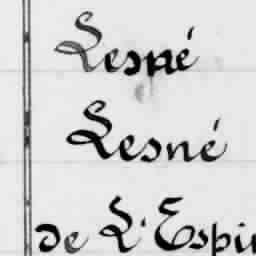 Lesné
Lesné
de L'Espi